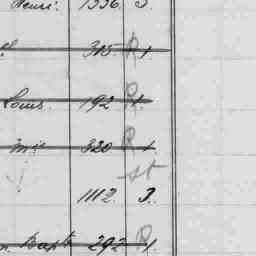 Henri. 1336. 3.
315. R 1
Louis. 192 R 1.
Mie 320 R 1.
st
1112. 3.
Bapte 292 R 1.